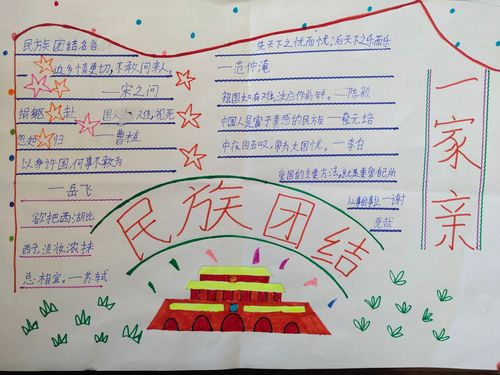 民族团结名言
近乡情更切,不敢问来人。
——宋之问
捐躯赴国难,视死
忽如归
——曹植
以身许国,何事不敢为
——岳飞
欲把西湖比
西子,淡妆浓抹
总相宜。——苏轼
先天下之忧而忧,后天下之乐而乐
——范仲淹
祖国如有难,汝应作前锋。——陈毅
中国人是富于美感的民族——蔡元培
中夜四五叹,常为大国忧。——李白
爱国的主要方法,就是要爱自己所
从事的事业——谢
觉哉
民族团结
一家亲